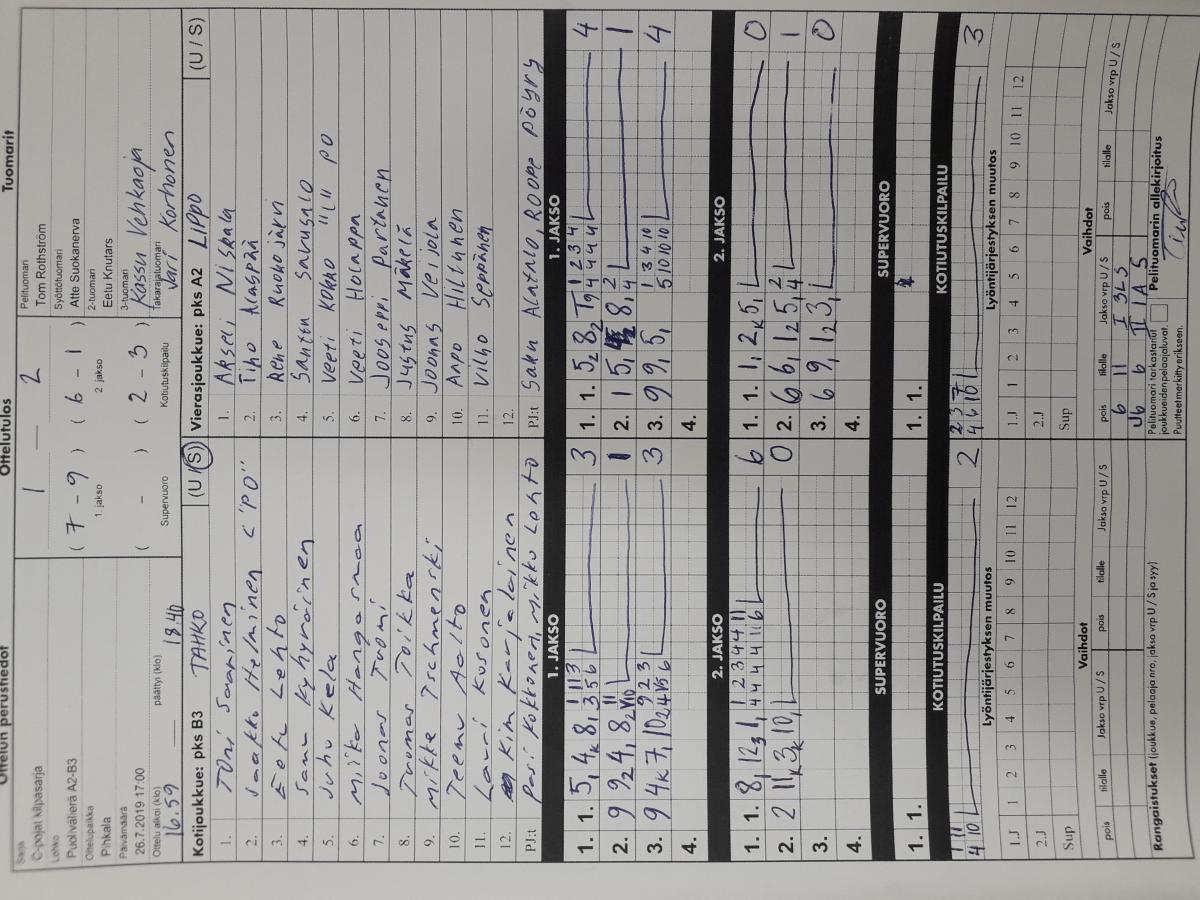 Ottelun perustiedot
Sarja
C-pojat kilpasarja
Lohko
Puolivälierä A2-B3
Ottelupaikka
Pihkala
Päivämäärä
26.7.2019 17:00
Ottelu alkoi (klo) päättyi (klo)
16.59 18.40
Ottelutulos
1 — 2
( 7 - 9 ) ( 6 - 1 )
1. jakso 2. jakso
( - ) ( 2 - 3 )
Supervuoro Kotiutuskilpailu
Tuomarit
Pelituomari
Tom Rothström
Syöttötuomari
Atte Suokanerva
2-tuomari
Eetu Knutars
3-tuomari
Kassu Vehkaoja
Takarajatuomari
Jari Korhonen
Kotijoukkue: pks B3 TAHKO (U / S)
1. Toni Saarinen
2. Jaakko Heminen C "PO"
3. Eetu Lehto
4. Samu Kyhyräinen
5. Juho Kela
6. Miika Hangasmaa
7. Joonas Tuomi
8. Tuomas Toikka
9. Mikke Tschmenski
10. Teemu Aalto
11. Lauri Kosonen
12. Kim Karjalainen
PJ:t Pasi Kokkonen, Mikko Lehto
Vierasjoukkue: pks A2 LIPPO (U / S)
1. Akseli Niskala
2. Tiho Alaspää
3. Rene Ruokojärvi
4. Santtu Savusalo
5. Veeti Kokko "C" PO
6. Veeti Holappa
7. Jooseppi Partanen
8. Justus Mäkelä
9. Joonas Veijola
10. Anpo Hiltunen
11. Vilho Seppänen
12.
PJ:t Saku Alatalo, Roope Pöyry
1. JAKSO 1. JAKSO
1. 1. 5, 4k 8, 3 1. 1. 5 2 8 2 4
2. 9 9 2 4, 8 2 1 2. 1 5, 8, 1
3. 9 4k 7, 10 2 3 3. 9 9, 5, 4
4. 4.
2. JAKSO 2. JAKSO
1. 1. 8, 12 3 1, 6 1. 1. 1, 2k 5, 0
2. 2 11k 3k 10, 0 2. 6 6, 12 5, 1
3. 3. 6 9, 12 3, 0
4. 4.
SUPERVUORO SUPERVUORO
1. 1. 1. 1.
KOTIUTUSKILPAILU KOTIUTUSKILPAILU
1 11 2 2 3 7 3
4 10 4 6 10
Lyöntijärjestyksen muutos Lyöntijärjestyksen muutos
1.J 1 2 3 4 5 6 7 8 9 10 11 12 1.J 1 2 3 4 5 6 7 8 9 10 11 12
2.J 2.J
Sup Sup
Vaihdot Vaihdot
pois tilalle Jakso vrp U / S pois tilalle Jakso vrp U / S pois tilalle Jakso vrp U / S pois tilalle Jakso vrp U / S
6 11 I 3L5
U6 6 II 1A5
Rangaistukset (joukkue, pelaaja nro, jakso vrp U / S ja syy)
Pelituomari tarkastanut
joukkueiden pelaajaluvat.
Puutteet merkitty erikseen.
Pelituomarin allekirjoitus